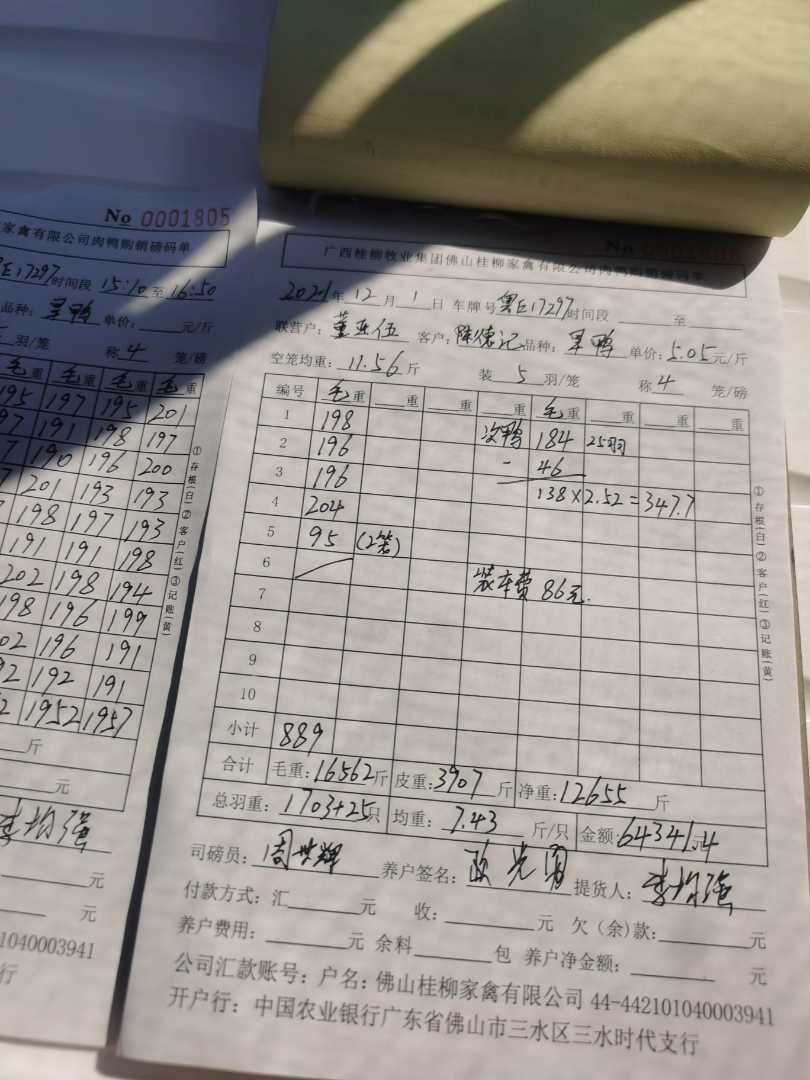 No 0001805
家禽有限公司肉鸭购销磅码单
17297 时间段 15:10 至 16:50
品种: 单价: 元/斤
羽/笼 称 4 笼/磅
毛重 毛重 毛重 毛重
195 197 195 201
97 191 198 197
7 190 196 200
201 193 193
198 197 193
191 191 198
202 198 194
198 196 199
02 196 191
92 192 191
2 1952 1957
斤
元
李均强
元
元
1040003941
行
①存根(白)②客户(红)③记账(黄)
No
广西桂柳牧业集团佛山桂柳家禽有限公司肉鸭购销磅码单
2021年 12月 1日 车牌号 粤E17297 时间段 至
联营户: 董亚伍 客户: 陈德记 品种: 单价: 5.05元/斤
空笼均重: 11.56斤 装 5 羽/笼 称 4 笼/磅
编号 毛重 重 重 重 毛重 重 重 重
1 198 次鸭 184 25羽
2 196 - 46
3 196 138×2.52=347.7
4 204
5 95 (2笼)
6
7 装车费 86元.
8
9
10
小计 889
合计 毛重: 16562斤 皮重: 3907斤 净重: 12655斤
总羽重: 1703+25只 均重: 7.43 斤/只 金额: 64341.4
司磅员: 周世辉 养户签名: 提货人: 李均强
付款方式: 汇 元 收: 元 欠(余)款: 元
养户费用: 元 余料 包 养户净金额: 元
公司汇款账号: 户名: 佛山桂柳家禽有限公司 44-442101040003941
开户行: 中国农业银行广东省佛山市三水区三水时代支行
①存根(白)②客户(红)③记账(黄)